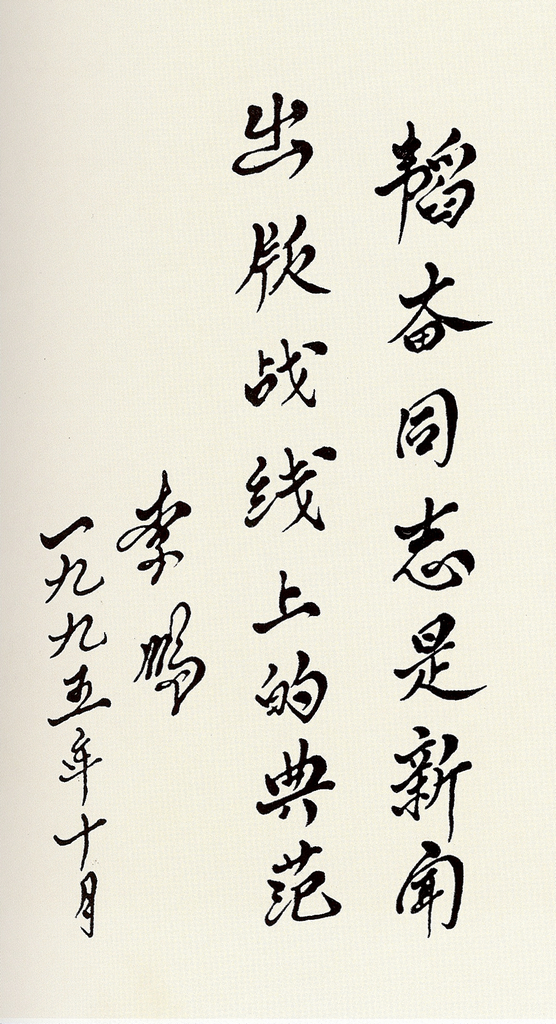 韬奋同志是新闻
出版战线上的典范
李鹏
一九九五年十月